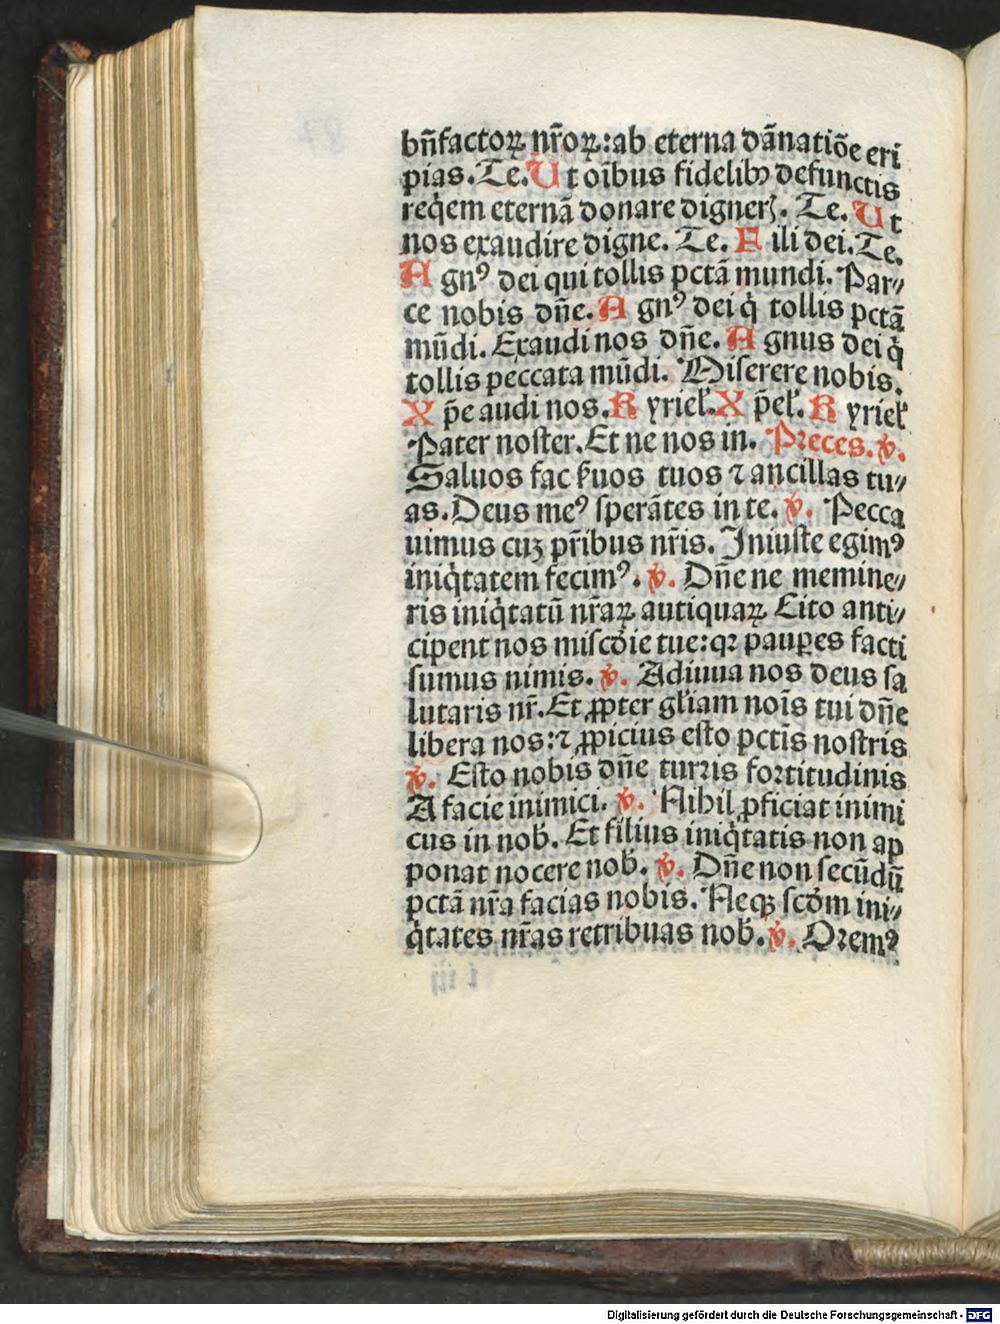 bn̄factoꝝ nr̄oꝝ:ab eterna dānatiōe eri
pias.Te.Ut oībus fidelibꝫ defunctis
req̇em eternā donare dignerꝭ. Te. Ut
nos exaudire digne. Te. Fili dei.Te.
Agnꝰ dei qui tollis pctā mundi. Par⸗
ce nobis dn̄e. Agnꝰ dei q̇ tollis pctā
mūdi. Exaudi nos dn̄e. Agnus dei q̇
tollis peccata mūdi. Miserere nobis.
Xp̄e audi nos. Kyriel̓.Xp̄el̓. Kyriel̓
Pater noster.Et ne nos in. Preces. ℣.
Saluos fac ẜuos tuos ⁊ ancillas tu⸗
as. Deus meꝰ sperātes in te. ℣. Pecca
uimus cuꝫ pr̄ibus nr̄is. Iniuste egimꝰ
iniq̇tatem fecimꝰ. ℣. Dn̄e ne memine⸗
ris iniq̇tatū nr̄aꝝ antiquaꝝ Cito anti⸗
cipent nos mīscd̄ie tue:qꝛ pauꝑes facti
sumus nimis. ℣. Adiuua nos deus sa
lutaris nr̄. Et ꝓpter gl̄iam noīs tui dn̄e
libera nos:⁊ ꝓpicius esto pctīs nostris
℣. Esto nobis dn̄e turris fortitudinis
A facie inimici. ℣. Nihil ꝓficiat inimi
cus in nob̓. Et filius iniq̇tatis non ap
ponat nocere nob̓. ℣. Dn̄e non secūdū
pctā nr̄a facias nobis. Neqꝫ scd̄m ini⸗
q̇tates nr̄as retribuas nob̓. ℣. Oremꝰ
Digitalisierung gefördert durch die Deutsche Forschungsgemeinschaft - DFG